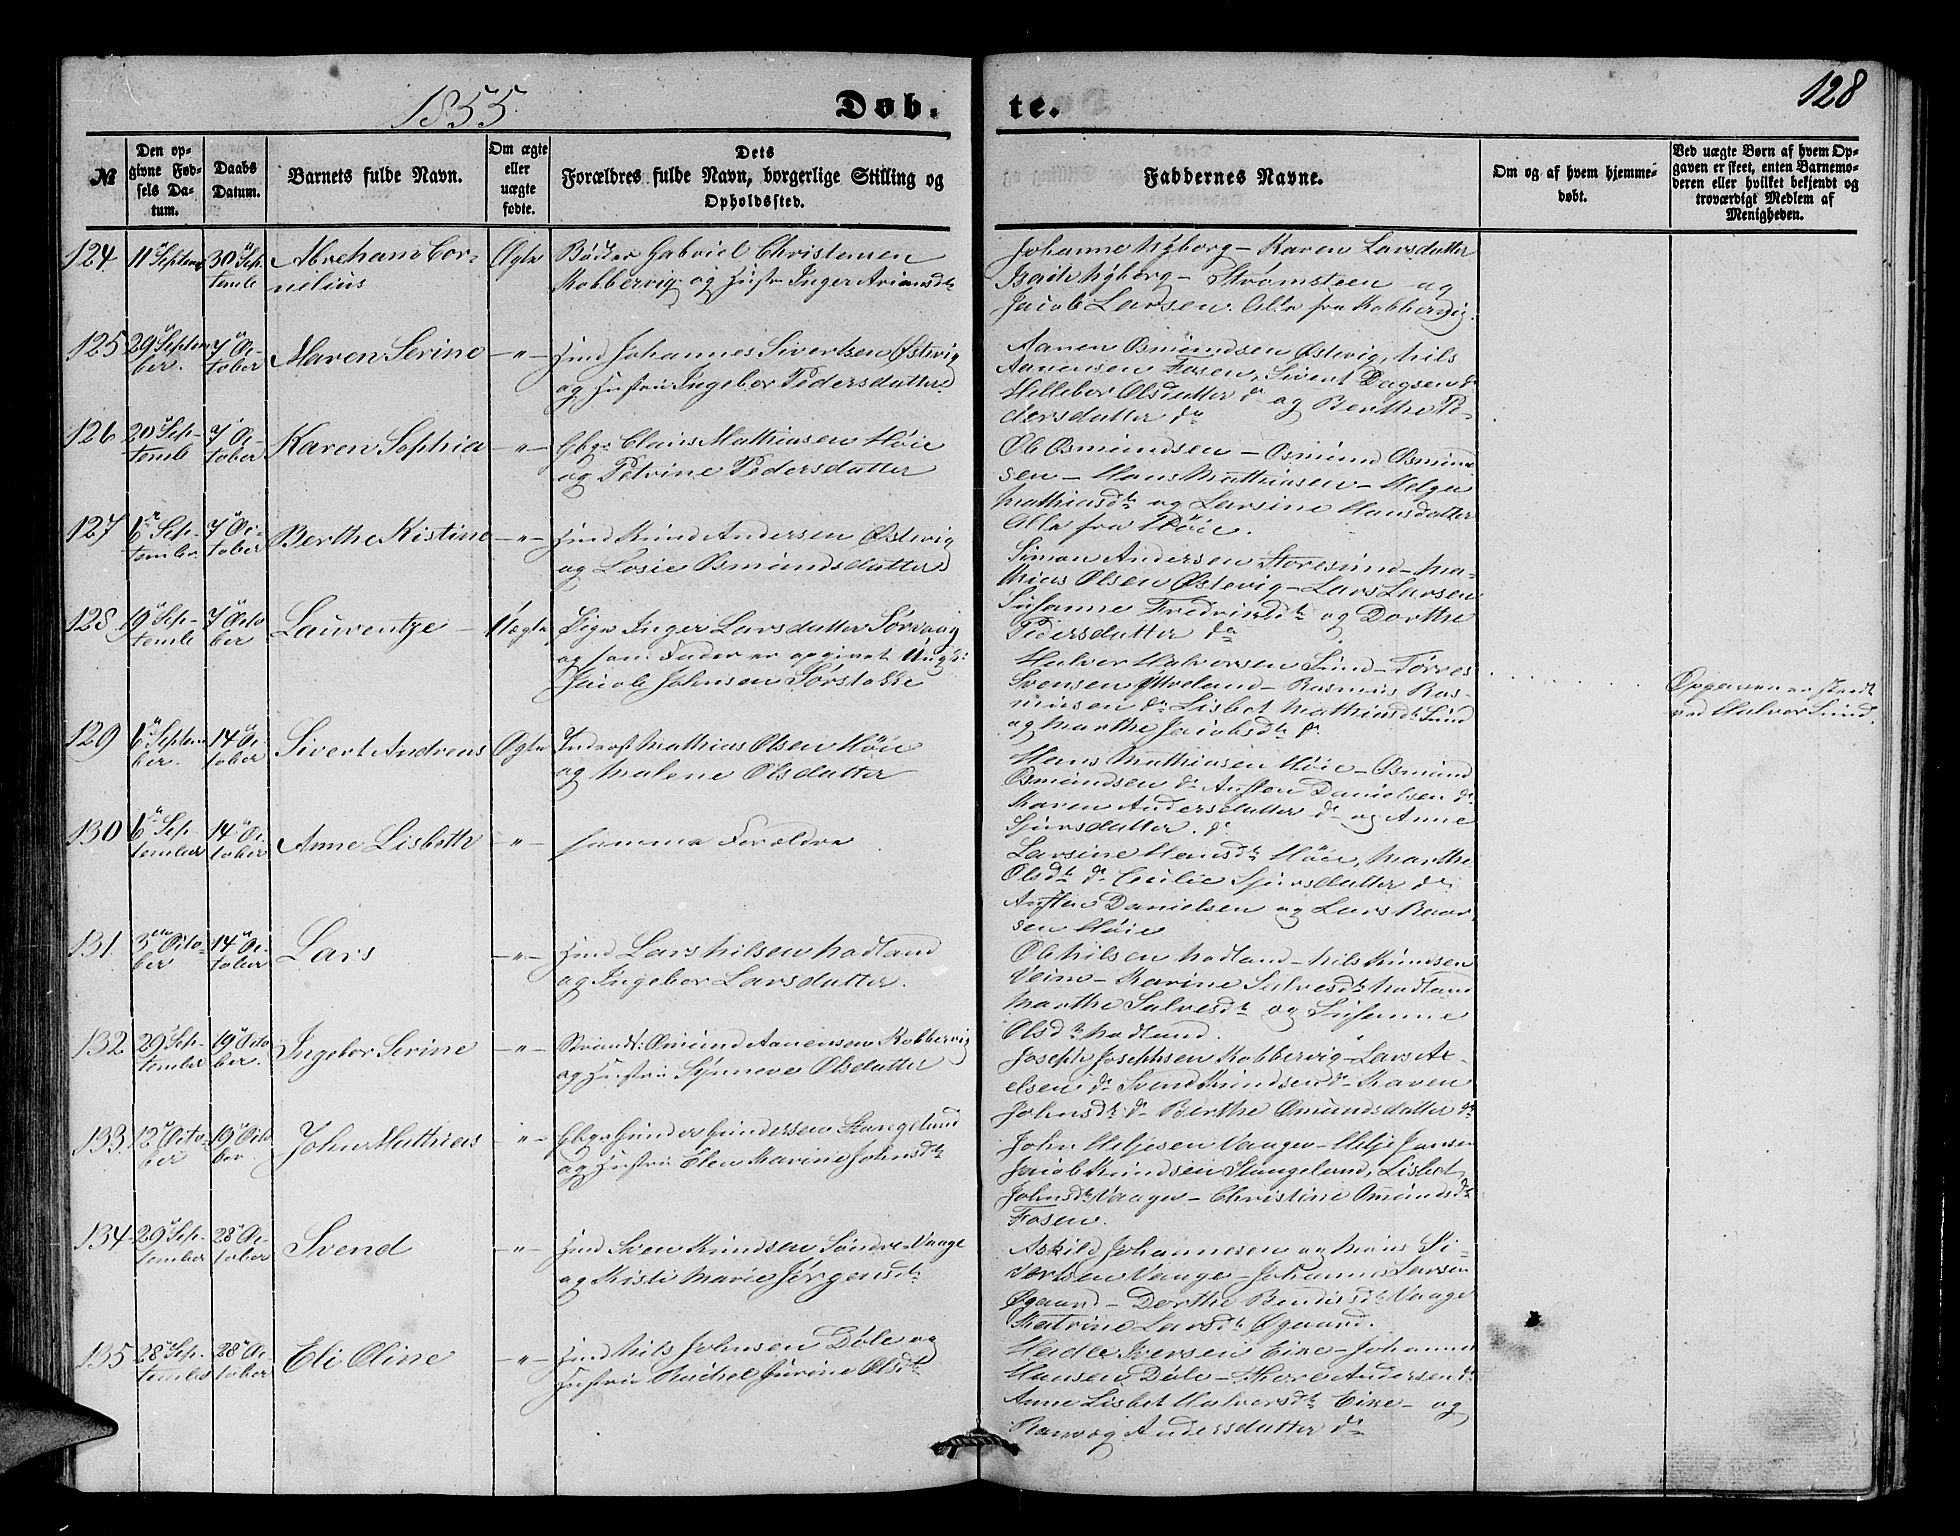 1855
Døb.
te.
128
№
Den op-
givne Fød-
sels Da-
tum.
Daabs
Datum.
Barnets fulde Navn.
Om ægte
eller
uægte
fødte.
Dets
Forældres fulde Navn, borgerlige Stilling og
Opholdssted.
Faddernes Navne.
Om og af hvem hjemme-
døbt.
Ved uægte Børn af hvem Op-
gaven er skeet, enten Barnemo-
deren eller hvilket bekjendt og
troværdigt Medlem af
Menigheden.
124
11 Septemb
30 Sep-
temb
Abraham Cor-
nelius
Ægte
Bødker Gabriel Christensen
Kobbervig og Hustr Inger Ariansdtr
Johanne Nyborg - Karen Larsdatter
Nyborg - Strømsteen og
Jacob Larsen. Alle fra Kobbervig.
125
29 Septem
ber.
7 Oc-
tober
Maren Serine
-"-
Johannes Sivertsen Østvig
og Hustru Ingebor Pedersdatter
Aanen Osmundsen Østvig, Nils
Aanensen Fosen, Sivert Dagsen do
Hellebor Olsdatter do og Berthe Pe-
dersdatter do
126
20 Sep-
temb
7 Oc-
tober
Karen Sophia
-"-
Gbr Claus Mathiasen Høie
og Petrine Pedersdatter
Ole Osmundsen - Osmund Osmund
sen - Hans Mathiasen - Helga
Mathiasdtr og Larsine Hansdatter
Alle fra Høie.
127
6 Sep-
tember
7 Oc-
tober
Berthe Kistine
-"-
Knud Andersen Østvig
og Losie Osmundsdatter
Simon Andersen Storesund - Ma-
thias Olsen Østevig - Lars Larsen
Susanne Fredriksdtr og Dorthe
Pedersdatter do
128
19 Sep-
temb
7 Octo
ber
Laurentze
Uægte
Pige Inger Larsdatter Sørvaag
og som Fader er opgivet Ungk:
Jacob Johnsen Sørstokke
Halvor Halvorsen Sund - Tørres
Svensen Ytreland - Rasmus Ras-
musen do Lisbet Mathiasdtr Sund
og Marthe Jacobsdtr do
Opgaven er skeedt
ved Halvor Sund.
129
6 Septem
ber.
14 Oc-
tober
Sivert Andreas
Ægte
Inderst Mathias Olsen Høie
og Malene Olsdatter
Hans Mathiasen Høie - Osmund
Osmundsen do Austen Danielsen do
Karen Andersdatter do og Anne
Sjursdatter. do
130
6 Sep
tember
14 Oc-
tober
Anne Lisbeth
-"-
samme Forældre
Larsine Hansdtr Høie, Marthe
Olsdtr do Cecilie Sjursdatter do
Austen Danielsen og Lars Baar-
sen Høie
131.
3 Octo-
ber
14 Oc-
tober
Lars
-"-
Lars Nilsen Nodland
og Ingebor Larsdatter.
Ole Nilsen Nodland - Nils Knudsen
Veim - Karine Salvesdtr Nodland
Marthe Salvesdtr og Susanne
Olsdtr Nodland.
132
29 Sep-
tember
19 Octo
ber.
Ingebor Serine
-"-
Strands: Omund Aanensen Kobbervig
og Hustru Synneve Olsdatter
Joseph Josephsen Kobbervig - Lars Ax-
elsen do Svend Knudsen do Karen
Johnsdtr do Berthe Omundsdatter do
133.
12 Octo
ber
19 Octo
ber.
John Mathias
-"-
Gbr Gunder Gundersen Stangeland
og Hustru Elen Karine Johnsdtr
John Heljesen Vaage - Helje Jansen
Jacob Knudsen Stangeland, Lisbet
Johnsdtr Vaage - Christine Omundsdtr
Fosen.
134
29 Sep-
tember
28 Oc-
tober
Svend
-"-
Sven Knudsen Søndre-Vaage
og Kisti Marie Jørgensdtr
Askild Johannesen og Mons Si-
vertsen Vaage - Johannes Larsen
Øgaand - Dorthe Bendixsdtr Vaage
Katrine Larsdtr Øgaand.
135
28 Sep-
tember
28 Oc-
tober
Eli Oline
-"-
Nils Johnsen Døle og
Hustru Rachel Jurine Olsdtr
Iversen Eike - Johannes
Hansen Døle - Tore Andersen do
Anne Lisbet Halvorsdtr Eike - og
Ranvog Andersdatter do